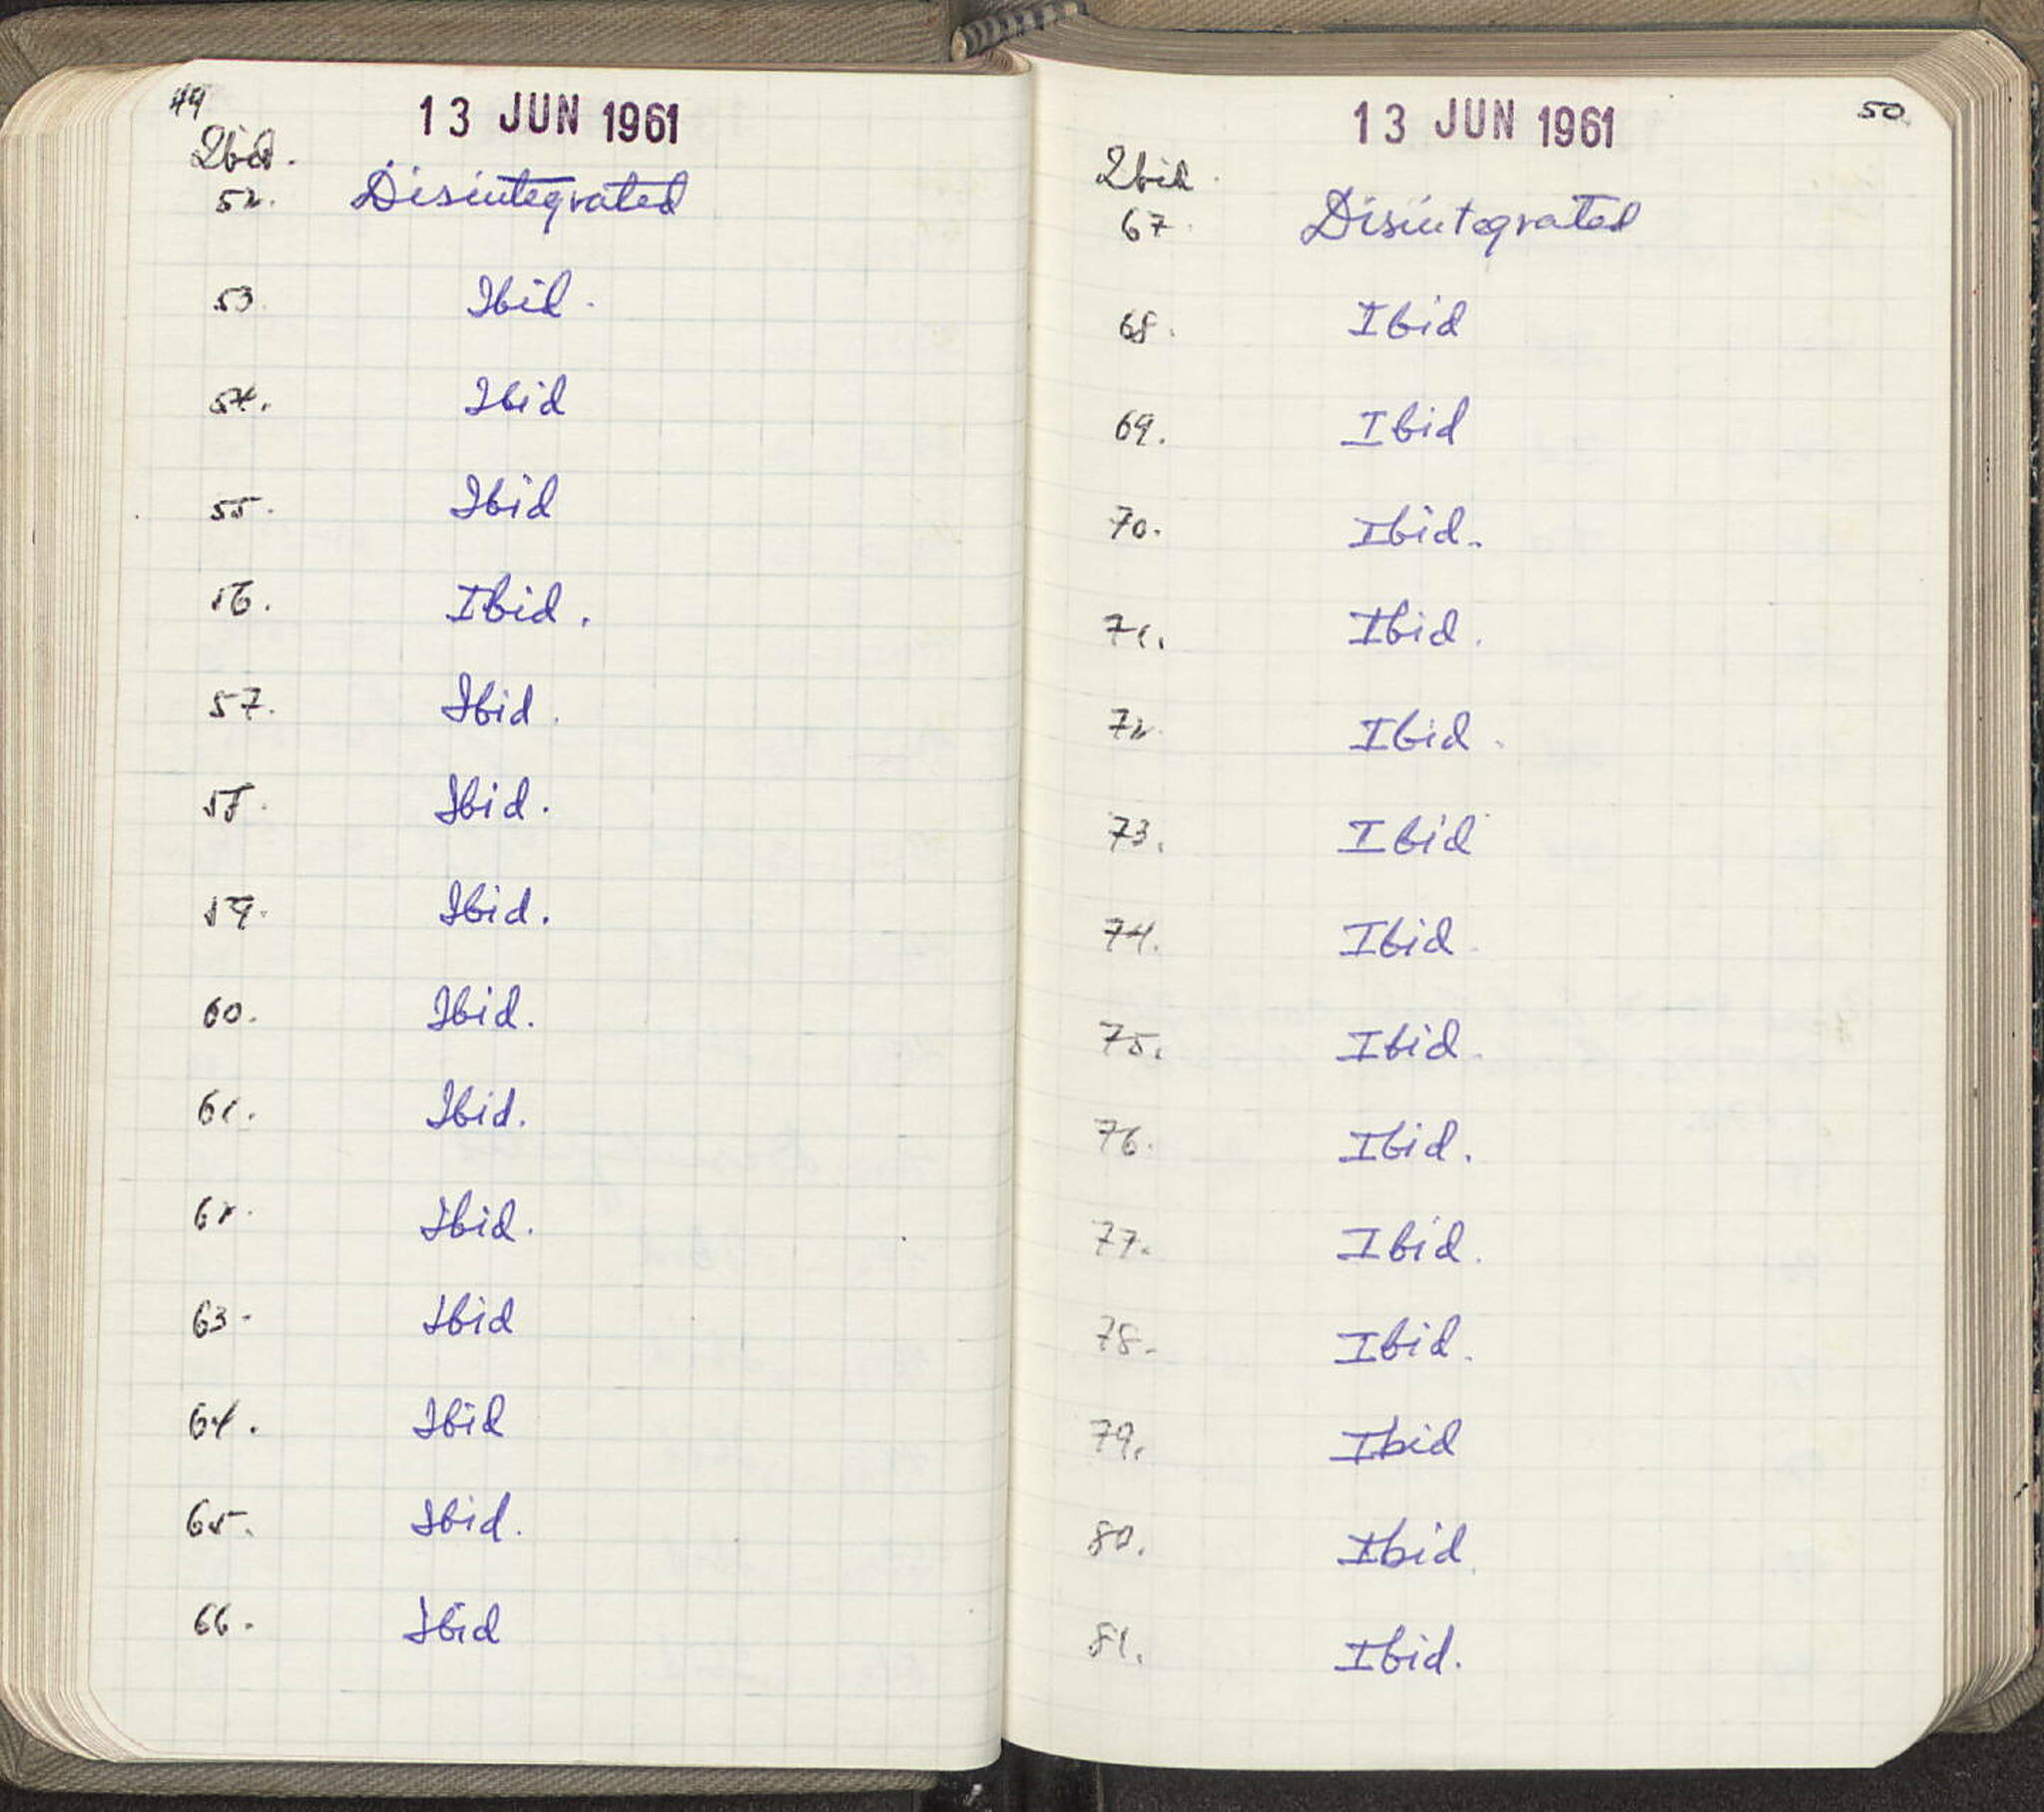 49
13 JUN 1961
Ibid.
52. Disintegrated
53. Ibid.
54. Ibid
55. Ibid
56. Ibid.
57. Ibid.
58. Ibid.
59. Ibid.
60. Ibid.
61. Ibid.
62. Ibid.
63. Ibid
64. Ibid
65. Ibid.
66. Ibid
13 JUN 1961
50
Ibid.
67. Disintegrated
68. Ibid
69. Ibid
70. Ibid.
71. Ibid.
72. Ibid.
73. Ibid
74. Ibid.
75. Ibid.
76. Ibid.
77. Ibid.
78. Ibid.
79. Ibid
80. Ibid.
81. Ibid.